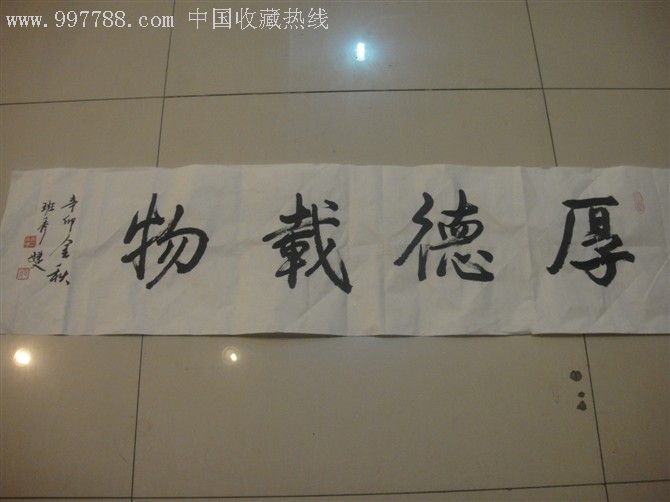 www.997788.com 中国收藏热线
厚德載物
辛卯金秋